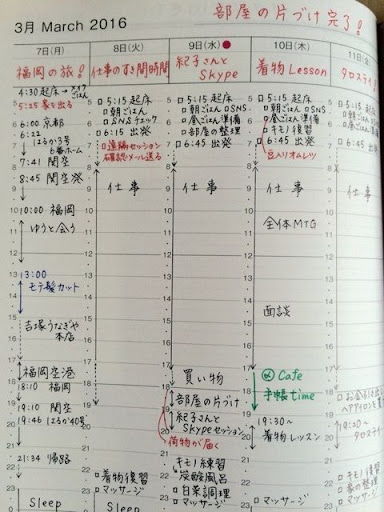 部屋の片づけ完了!
3月 March 2016
7日(月)
福岡の旅!
4:30起床
5:25 家を出る
6:00 京都
6:22
はるか3号
6番ホーム
7:41 関空
8:45 関空発
10:00 福岡
ゆうと会う
13:00
モテ髪カット
吉塚うなぎや
本店
福岡空港
18:10 福岡
19:10 関空
19:46 はるか40号
21:34 帰路
Sleep
8日(火)
仕事のすき間時間
5:15 起床
朝ごはん
SNSチェック
6:15 出発
遠隔セッション
確認メール送る
仕事
着物復習
マッサージ
Sleep
9日(水)
紀子さんと
Skype
5:15 起床
朝ごはん SNS
昼ごはん準備
部屋の整理
6:45 出発
仕事
買い物
部屋の片づけ
紀子さんと
Skypeセッション
荷物が届く
キモノ練習
炭酸風呂
白菜調理
マッサージ
10日(木)
着物 Lesson
5:15 起床
朝ごはん SNS
昼ごはん準備
キモノ復習
6:45 出発
仕事
全体MTG
面談
Cafe
手帳time
19:30~
着物レッスン
マッサージ
11日(金)
5:15
朝ごはん
仕事
19:30~
キモノ復習
マッサージ